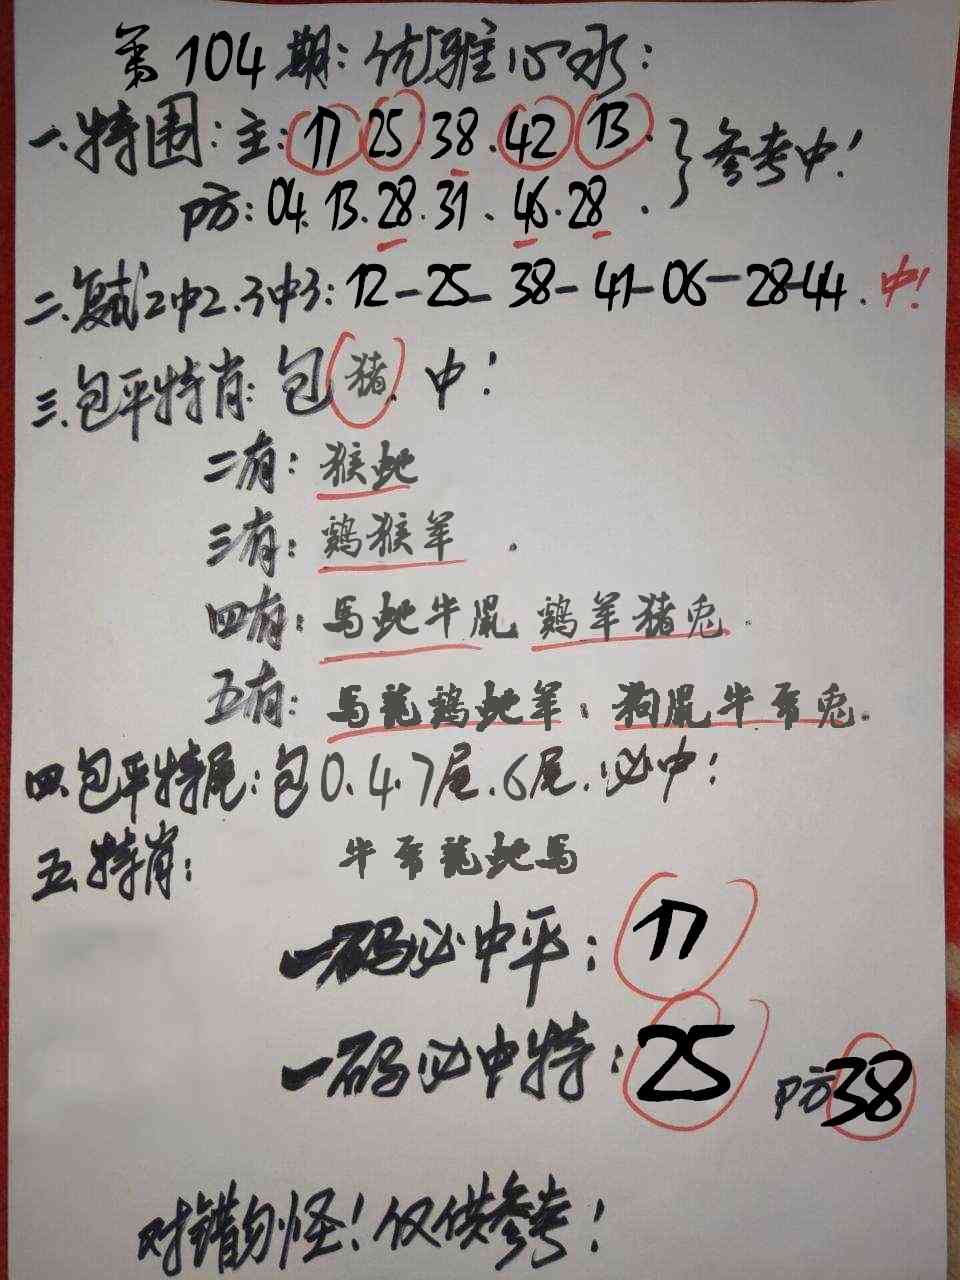 第104期:优雅心水:
一.特围:主:17 25.38.42 13. }参考中!
防:04.13.28.31.46.28.
二.复式2中2.3中3:12-25-38-41-06-28-44.中!
三.包平特肖:包猪.中!
二有:猴蛇
三有:鷄猴羊.
四有:馬蛇牛鼠 鷄羊猪兎.
五有:馬龍鷄蛇羊:狗鼠牛虎兎.
四.包平特尾:包0.4.7尾.6尾.必中!
五.特肖:牛虎龍蛇馬
一码必中平:17
一码必中特:25 防38
对错勿怪!仅供参考!